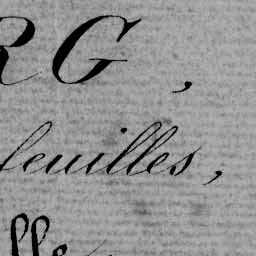 RG,
feuilles,